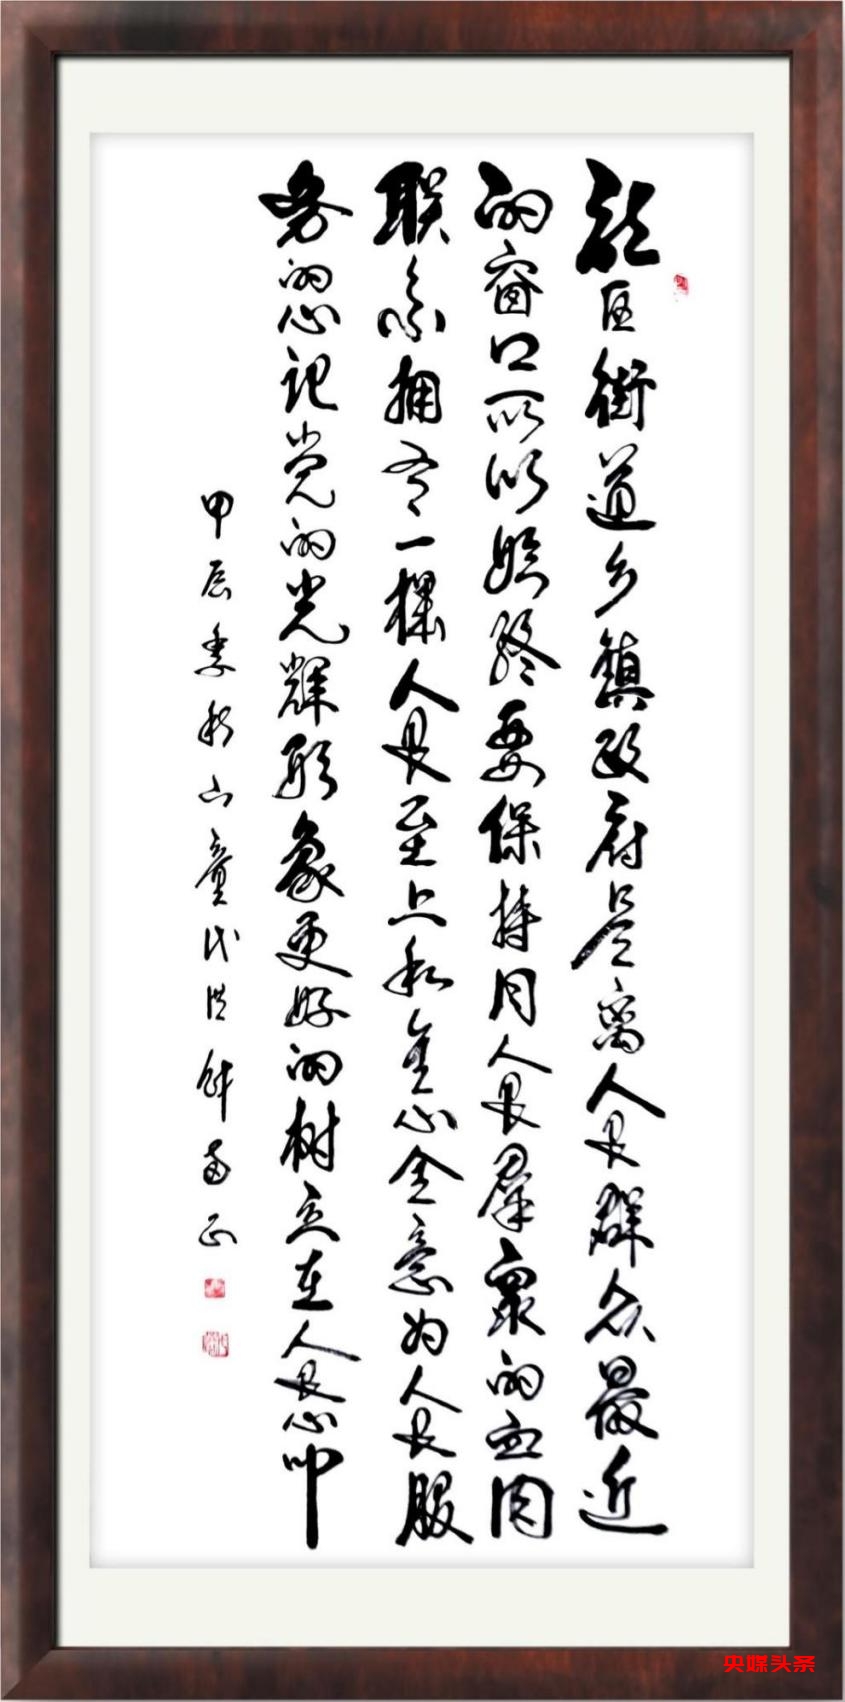 区街道乡镇政府是离人民群众最近
的窗口所以始终要保持同人民羣眾的血肉
联系拥有一棵人民至上和全心全意为人民服
务的心记党的光辉形象更好的树立在人民心中
甲辰季秋山童
央媒头条